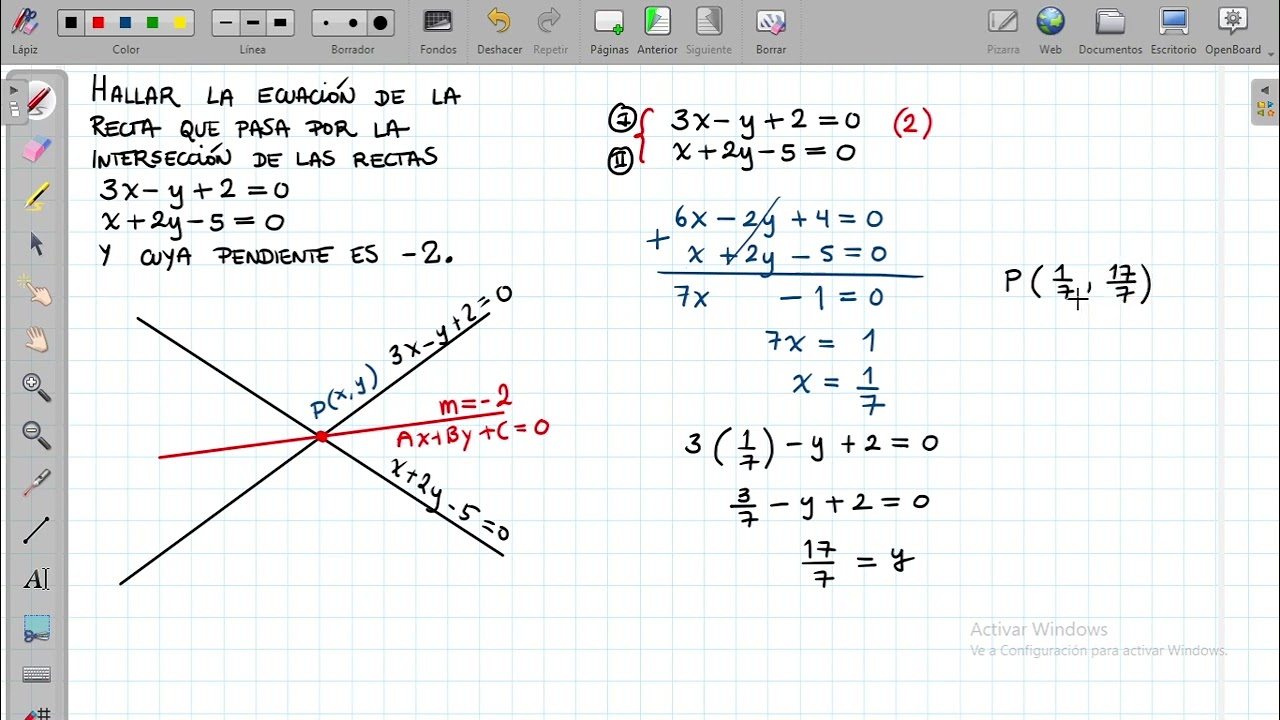 Lápiz
Color
Línea
Borrador
Fondos
Deshacer
Repetir
Páginas
Anterior
Siguiente
Borrar
Pizarra
Web
Documentos
Escritorio
OpenBoard
HALLAR LA ECUACIÓN DE LA
RECTA QUE PASA POR LA
INTERSECCIÓN DE LAS RECTAS
3x - y + 2 = 0
x + 2y - 5 = 0
Y CUYA PENDIENTE ES -2.
3x - y + 2 = 0
P(x, y)
m = -2
Ax + By + C = 0
x + 2y - 5 = 0
I 3x - y + 2 = 0 (2)
II x + 2y - 5 = 0
6x - 2y + 4 = 0
+ x + 2y - 5 = 0
7x - 1 = 0
7x = 1
x = 1/7
3(1/7) - y + 2 = 0
3/7 - y + 2 = 0
17/7 = y
P(1/7, 17/7)
AI
Activar Windows
Ve a Configuración para activar Windows.